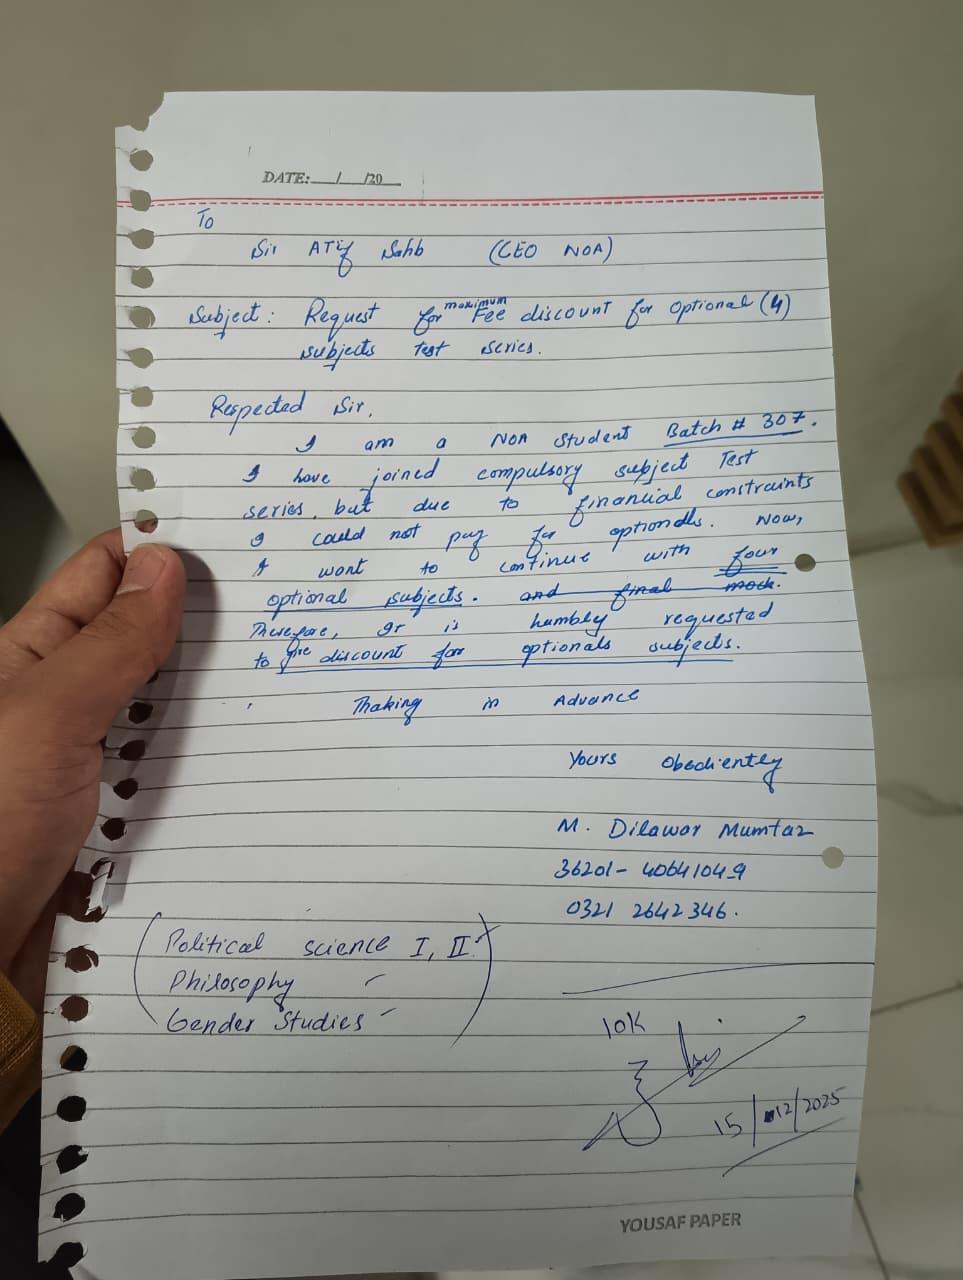 DATE:___/___/20___
To
Sir ATif Sahb (CEO NOA)
Subject: Request for maximum Fee discount for optional (4)
subjects Test series.
Respected Sir,
I am a NOA student Batch # 307.
I have joined compulsory subject Test
series, but due to financial constraints
I could not pay for optionals. Now,
I want to continue with four
optional subjects. and final mock.
Therefore, it is humbly requested
to give discount for optionals subjects.
Thaking in Advance
Yours Obediently
M. Dilawar Mumtaz
36201-4064104-9
0321 2642346.
Political science I, II
Philosophy
Gender Studies
10K
15/12/2025
YOUSAF PAPER